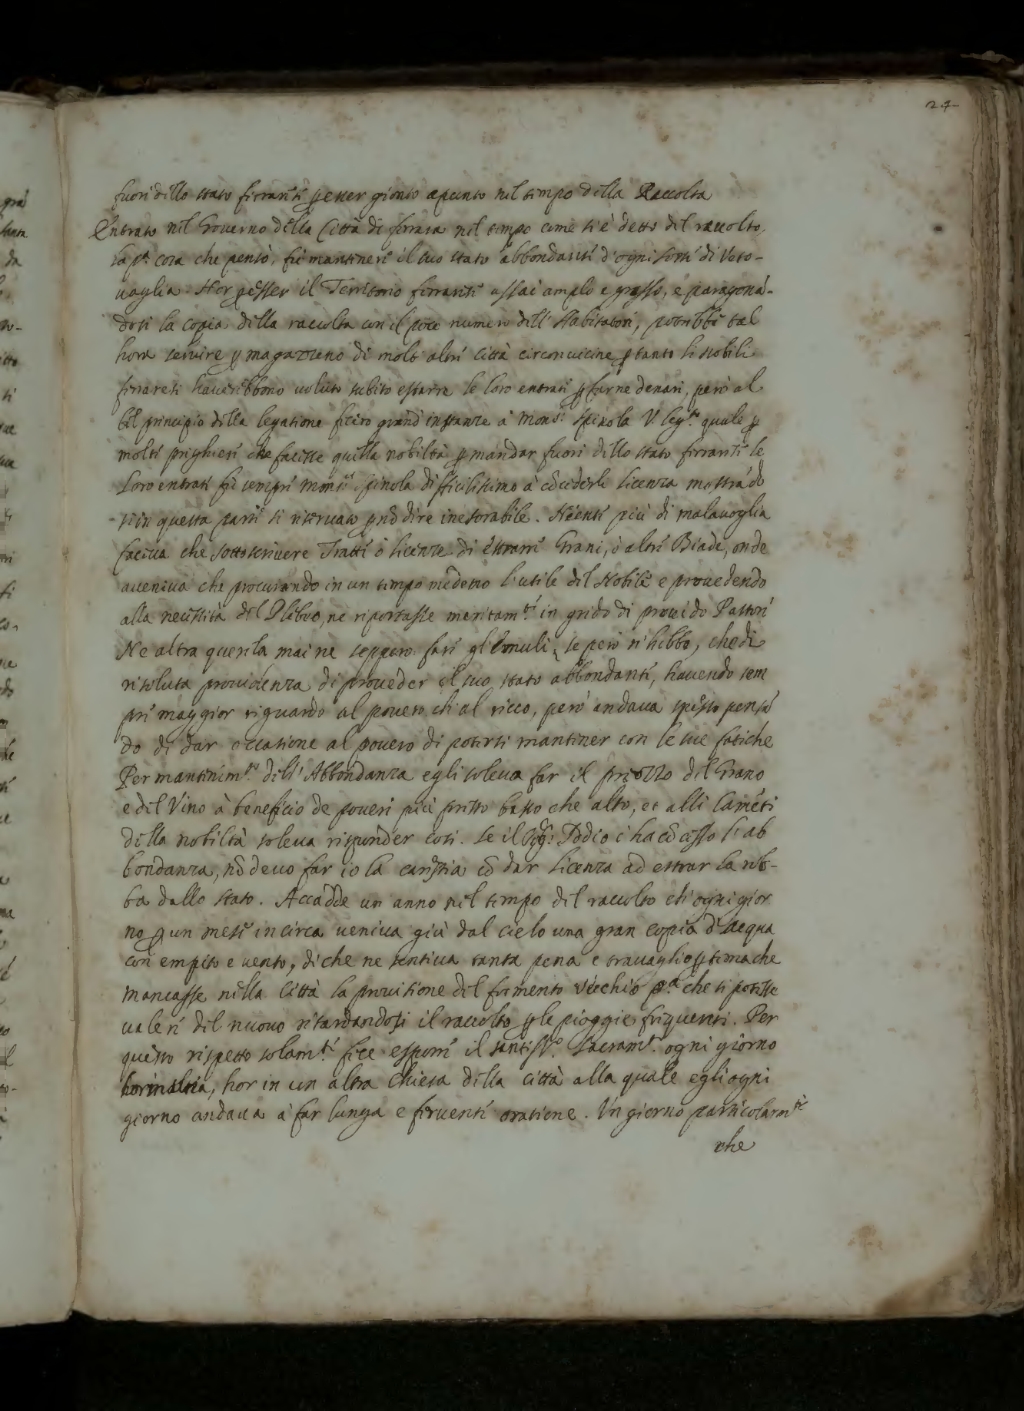 24
fuori dello stato ferrarese per esser gionto apunto nel tempo della Raccolta
Entrato nel Governo della Città di ferrara nel tempo come si è detto del raccolto,
la p.a cosa che pensò, fù mantinere il suo stato abbondante d'ogni sorte di Veto-
uaglia. Hor p esser il Territorio ferrarese assai amplo e grasso, e paragoná-
dosi la copia della raccolta con il poco numero dell' Habitatori, potrebbe tal
hora seruire p magazzeno di molte altre Città circonuicine, p tanto li Nobili
ferraresi hauerebbono uoluto subito estarre le loro entrate p farne denari, però al
bel principio della legatione fecero grand' instanze à Mons.r Spinola V. Leg.to quale p
molte preghiere che facesse quella nobiltà p mandar fuori dello stato ferrarese le
Loro entrate fù sempre Mons.r Spinola difficilissimo à cócederle licenza mostrádo
si in questa parte si riseruato p nó dire inesorabile. Niente più di malauoglia
faceua che sottoscriuere Tratte ò licenze di estrarre Grani, ò altre Biade, onde
auueniua che procurando in un tempo medemo l'utile del Nobile e prouedendo
alla necessità del Plebeo, ne riportasse meritam.te un grido di prouido Pastore
Ne altra querela mai ne seppero fare gl' Emuli, se però n'hebbe, che di
risoluta prouidenza di proueder il suo stato abbondante, hauendo sem
pre maggior riguardo al pouero, che al ricco, però andaua spesso pensá
do di dar occasione al pouero di potersi mantiner con le sue fatiche
Per mantinim.to dell' Abbondanza egli soleua far il prezzo del Grano
e del Vino à beneficio de poueri più presto basso che alto, et alli laméti
della nobiltà soleua risponder così. Se il Sig.r Iddio ci ha cócesso l'ab
bondanza, nó deuo far io la carestia có dar licenza ad estraer la rob-
ba dallo stato. Accadde un anno nel tempo del raccolto che ogni gior
no p un mese in circa ueniua giù dal cielo una gran copia d'acqua
con empito e uento, di che ne sentiua tanta pena e trauaglio p tema che
mancasse nella Città la prouisione del formento uecchio p.a che si potesse
ualere del nuouo ritardandosi il raccolto p le pioggie frequenti. Per
questo rispetto solam.te fece esporre il santiss.o sacram.to ogni giorno
hor in una, hor in un altra chiesa della città alla quale egli ogni
giorno andaua à far lunga e feruente oratione. Un giorno particolarm.te
che